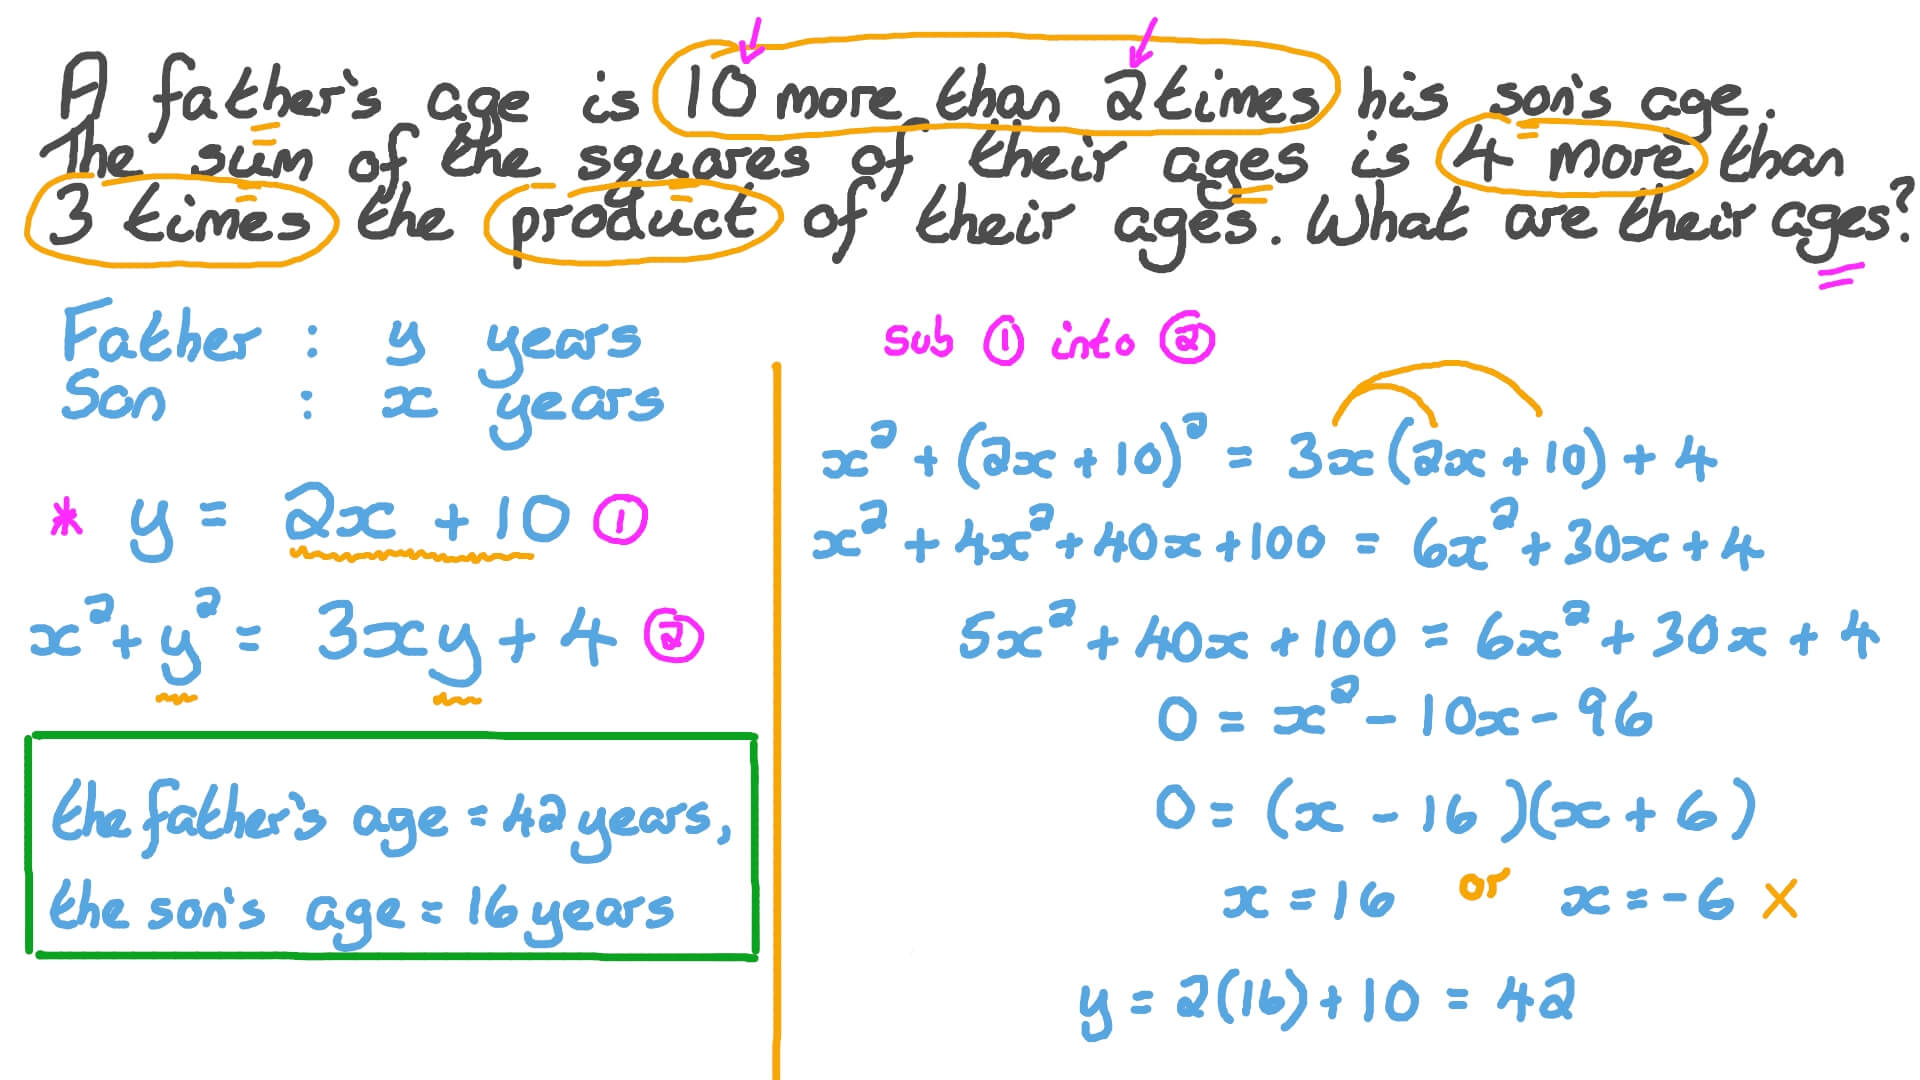 A father's age is 10 more than 2 times his son's age.
The sum of the squares of their ages is 4 more than
3 times the product of their ages. What are their ages?
Father : y years
Son : x years
* y = 2x + 10 ①
x² + y² = 3xy + 4 ②
the father's age = 42 years,
the son's age = 16 years
sub ① into ②
x² + (2x + 10)² = 3x(2x + 10) + 4
x² + 4x² + 40x + 100 = 6x² + 30x + 4
5x² + 40x + 100 = 6x² + 30x + 4
0 = x² - 10x - 96
0 = (x - 16)(x + 6)
x = 16 or x = -6 ×
y = 2(16) + 10 = 42